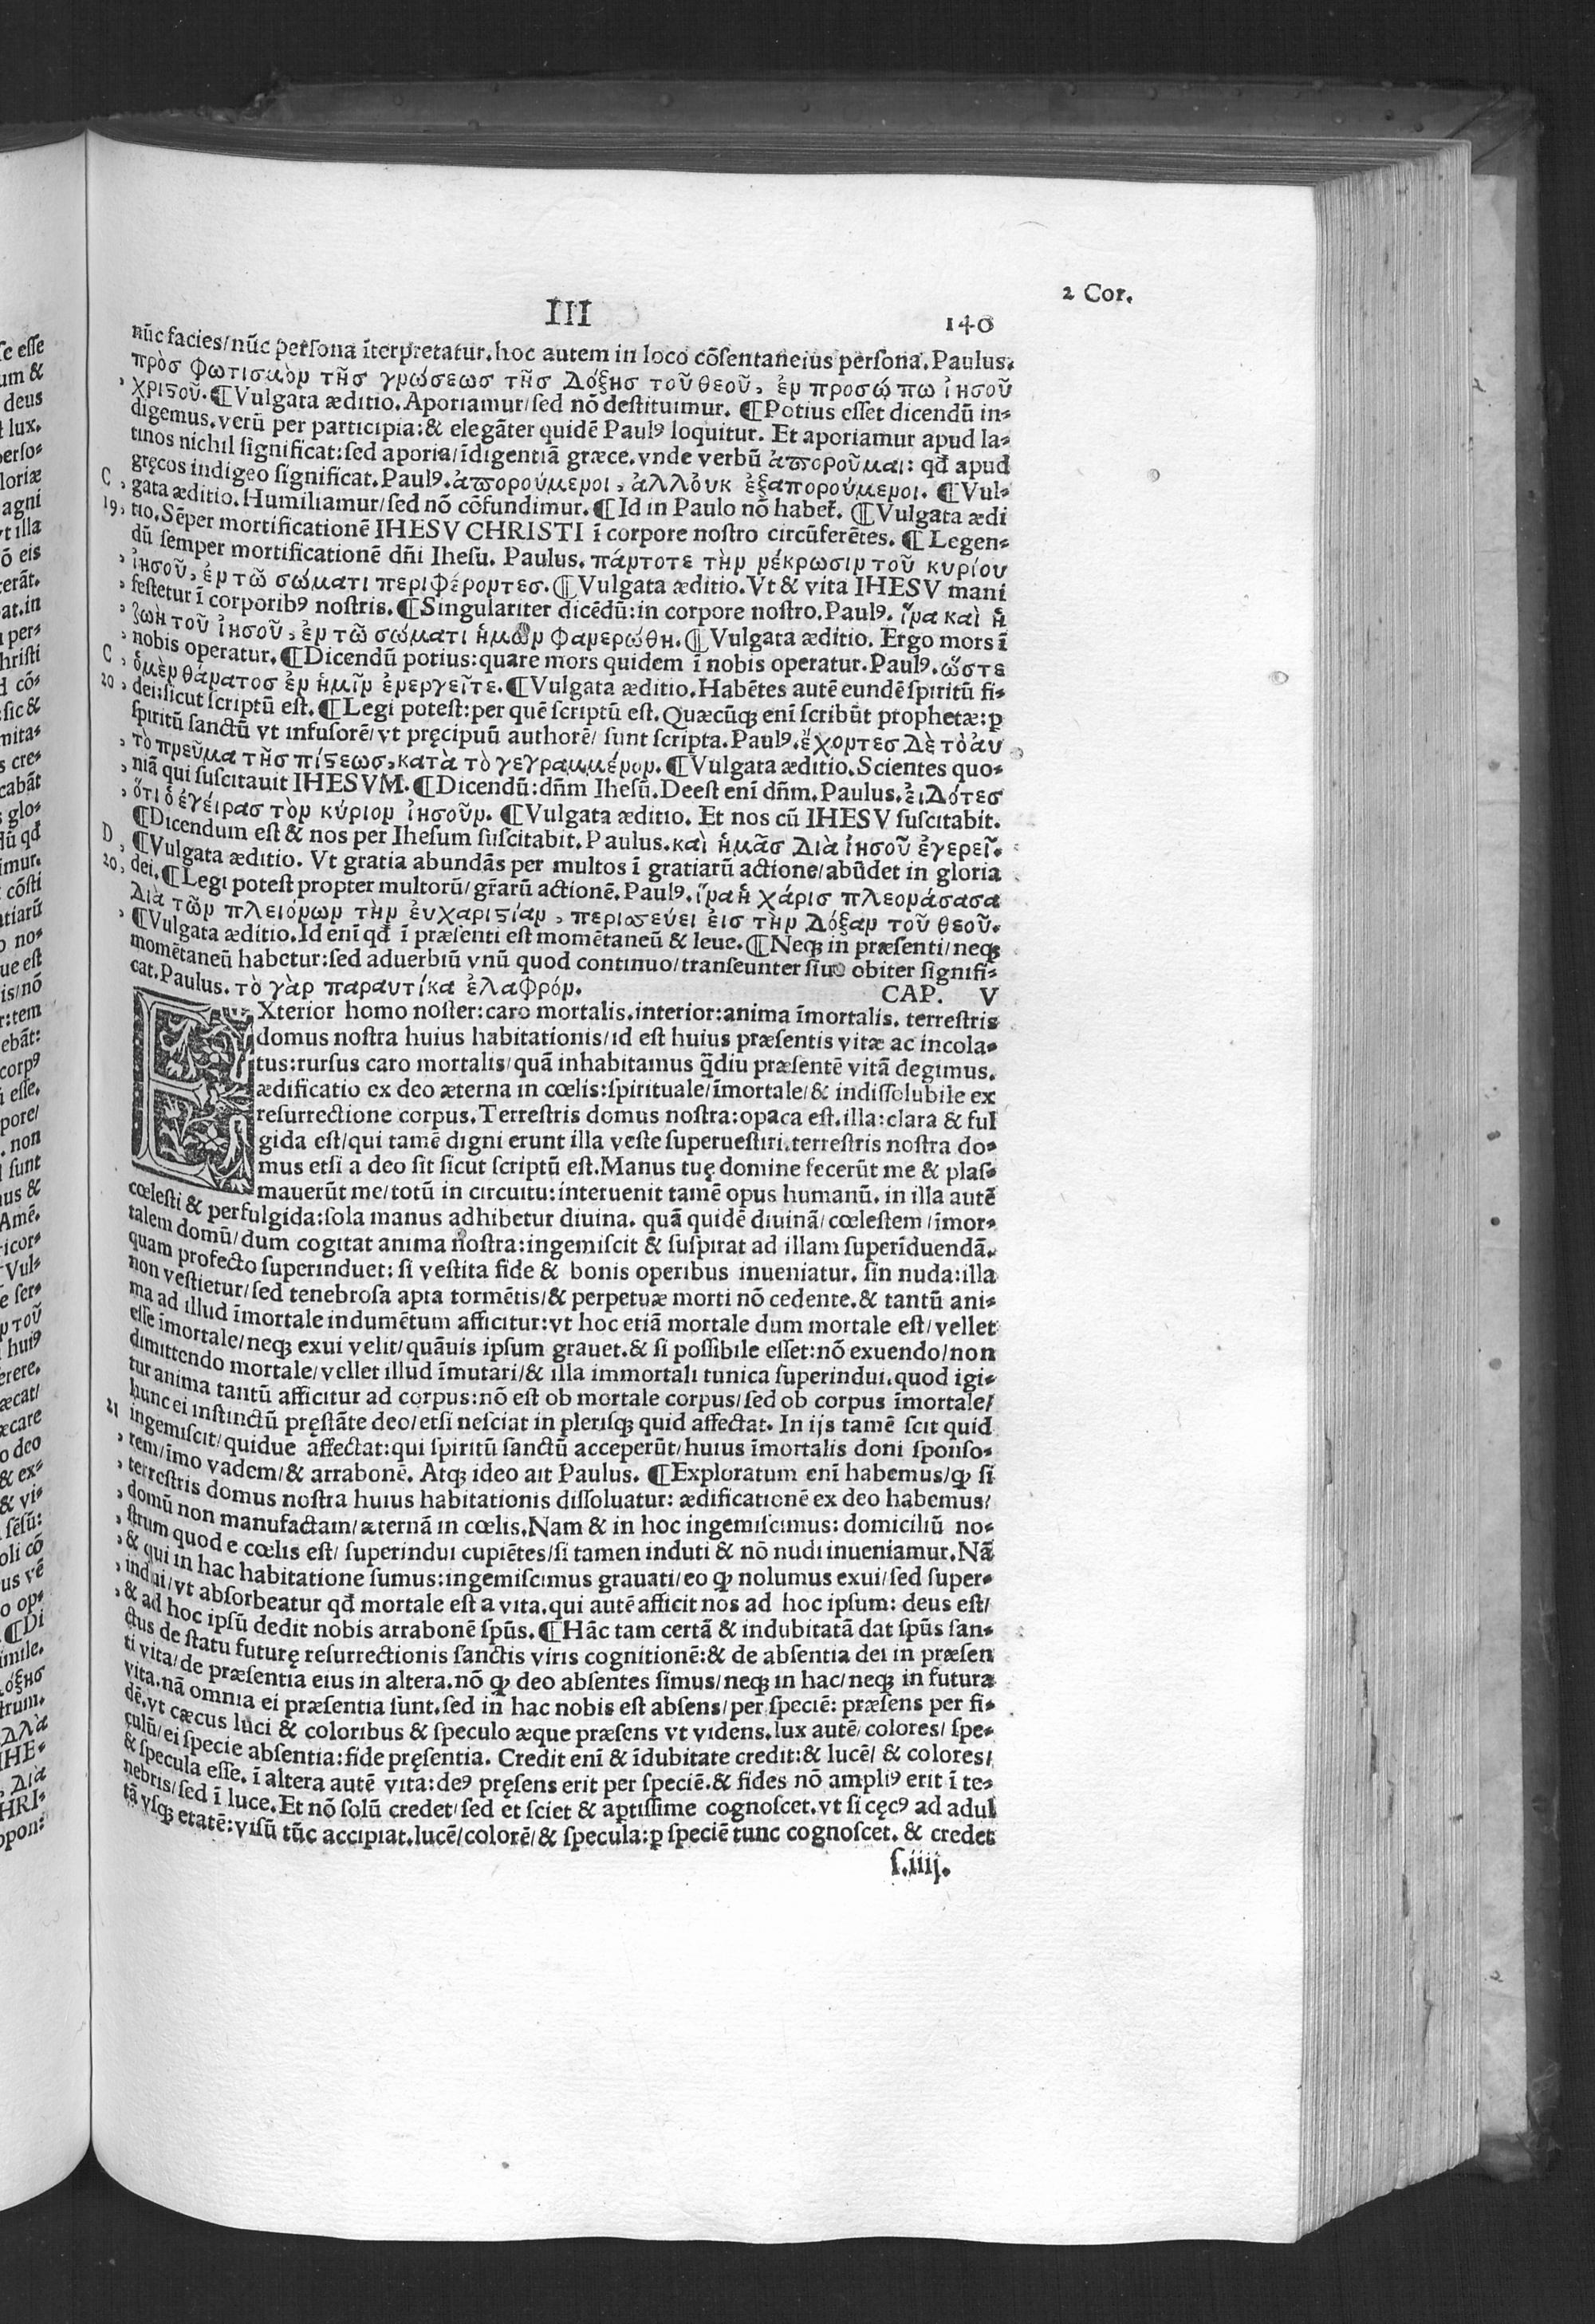 2 Cor.
III
140
nūc facies/nūc persona īterpretatur.hoc autem in loco cōsentaneius persona.Paulus.
πρὸσ φωτισμὸν τῆσ γνώσεωσ τῆσ δόξησ τοῦ θεοῦ, ἐν προσώπω ἰησοῦ
χριϛοῦ.¶Vulgata æditio.Aporiamur/sed nō destituimur. ¶Potius esset dicendū in-
digemus.verū per participia:& elegāter quidē Paulꝰ loquitur. Et aporiamur apud la-
tinos nichil significat:sed aporia/īdigentiā græce.vnde verbū ἀποροῦμαι: qđ apud
gręcos indigeo significat.Paulꝰ.ἀπορούμενοι, ἀλλ'ὀυκ ἐξαπορούμενοι. ¶Vul-
C , gata æditio.Humiliamur/sed nō cōfundimur.¶Id in Paulo nō habet̄. ¶Vulgata ædi
19, tio.Sēper mortificationē IHESV CHRISTI ī corpore nostro circūferētes.¶Legen-
dū semper mortificationē dn̄i Ihesu. Paulus. πάντοτε τὴν νέκρωσιν τοῦ κυρίου
, ἰησοῦ, ἐν τῶ σώματι περιφέροντεσ.¶Vulgata æditio.Vt & vita IHESV mani
, festetur ī corporibꝰ nostris.¶Singulariter dicēdū:in corpore nostro.Paulꝰ. ἵνα καὶ ἡ
, ζωὴ τοῦ ἰησοῦ, ἐν τῶ σώματι ἡμῶν φανερώθη.¶Vulgata æditio. Ergo mors ī
, nobis operatur.¶Dicendū potius:quare mors quidem ī nobis operatur.Paulꝰ.ὥστε
C , ὁ μὲν θάνατοσ ἐν ἡμῖν ἐνεργεῖτε.¶Vulgata æditio.Habētes autē eundē spiritū fi-
20 , dei:sicut scriptū est.¶Legi potest:per quē scriptū est.Quæcūqꝫ enī scribūt prophetæ:ꝑ
spiritū sanctū vt infusorē/vt pręcipuū authorē/ sunt scripta.Paulꝰ.ἔχοντεσ δὲ τὸ ἀυ
, τὸ πνεῦμα τῆσ πίϛεωσ,κατὰ τὸ γεγραμμένον.¶Vulgata æditio.Scientes quo-
, niā qui suscitauit IHESVM.¶Dicendū:dn̄m Ihesū.Deest enī dn̄m.Paulus.ἐιδότεσ
, ὅτι ὁ ἐγείρασ τὸν κύριον ἰησοῦν. ¶Vulgata æditio. Et nos cū IHESV suscitabit.
¶Dicendum est & nos per Ihesum suscitabit.Paulus.καὶ ἡμᾶσ διὰ ἰησοῦ ἐγερεῖ.
D , ¶Vulgata æditio. Vt gratia abundās per multos ī gratiarū actione/abūdet in gloria
20, dei.¶Legi potest propter multorū/gr̄arū actionē.Paulꝰ.ἵνα ἡ χάρισ πλεονάσασα
διὰ τῶν πλειόνων τὴν ἐυχαριϛίαν, περισσεύει ἐισ τὴν δόξαν τοῦ θεοῦ.
, ¶Vulgata æditio.Id enī qđ ī præsenti est momētaneū & leue.¶Neqꝫ in præsenti/neqꝫ
momētaneū habetur:sed aduerbiū vnū quod continuo/transeunter siue obiter signifi-
cat.Paulus. τὸ γὰρ παραυτίκα ἐλαφρόν.
CAP. V
EXterior homo noster:caro mortalis.interior:anima īmortalis. terrestris
domus nostra huius habitationis/id est huius præsentis vitæ ac incola-
tus:rursus caro mortalis/quā inhabitamus q̄diu præsentē vitā degimus.
ædificatio ex deo æterna in cœlis:spirituale/īmortale/& indissolubile ex
resurrectione corpus.Terrestris domus nostra:opaca est.illa:clara & ful
gida est/qui tamē digni erunt illa veste superuestiri.terrestris nostra do-
mus etsi a deo sit sicut scriptū est.Manus tuę domine fecerūt me & plas-
mauerūt me/totū in circuitu:interuenit tamē opus humanū. in illa autē
cœlesti & perfulgida:sola manus adhibetur diuina. quā quidē diuinā/cœlestem/īmor-
talem domū/dum cogitat anima nostra:ingemiscit & suspirat ad illam superīduendā.
quam profecto superinduet: si vestita fide & bonis operibus inueniatur. sin nuda:illa
non vestietur/sed tenebrosa apta tormētis/& perpetuæ morti nō cedente.& tantū ani-
ma ad illud īmortale indumētum afficitur:vt hoc etiā mortale dum mortale est/vellet
esse īmortale/neqꝫ exui velit/quāuis ipsum grauet.& si possibile esset:nō exuendo/non
dimittendo mortale/vellet illud īmutari/& illa immortali tunica superindui.quod igi-
tur anima tantū afficitur ad corpus:nō est ob mortale corpus/sed ob corpus īmortale/
hunc ei instinctū pręstāte deo/etsi nesciat in plerisqꝫ quid affectat. In ijs tamē scit quid
21 ingemiscit/quidue affectat:qui spiritū sanctū acceperūt/huius īmortalis doni sponso-
, rem/īmo vadem/& arrabonē. Atqꝫ ideo ait Paulus. ¶Exploratum enī habemus/ꝙ si
, terrestris domus nostra huius habitationis dissoluatur: ædificationē ex deo habemus/
, domū non manufactam/æternā in cœlis.Nam & in hoc ingemiscimus: domiciliū no-
, strum quod e cœlis est/ superindui cupiētes/si tamen induti & nō nudi inueniamur.Nā
, & qui in hac habitatione sumus:ingemiscimus grauati/eo ꝙ nolumus exui/sed super-
, indui/vt absorbeatur qđ mortale est a vita.qui autē afficit nos ad hoc ipsum: deus est/
, & ad hoc ipsū dedit nobis arrabonē sp̄us. ¶Hāc tam certā & indubitatā dat sp̄us san-
ctus de statu futurę resurrectionis sanctis viris cognitionē:& de absentia dei in præsen
ti vita/de præsentia eius in altera.nō ꝙ deo absentes simus/neqꝫ in hac/neqꝫ in futura
vita.nā omnia ei præsentia sunt.sed in hac nobis est absens/per speciē: præsens per fi-
dē.vt cæcus luci & coloribus & speculo æque præsens vt videns.lux autē/colores/ spe-
culū/ei specie absentia:fide pręsentia. Credit enī & īdubitate credit:& lucē/ & colores/
& specula esse. ī altera autē vita:deꝰ pręsens erit per speciē.& fides nō ampliꝰ erit ī te-
nebris/sed ī luce.Et nō solū credet/sed et sciet & aptissime cognoscet.vt si cęcꝰ ad adul
tā vsqꝫ etatē:visū tūc accipiat.lucē/colorē/& specula:ꝑ speciē tunc cognoscet. & credet
s.iiij.